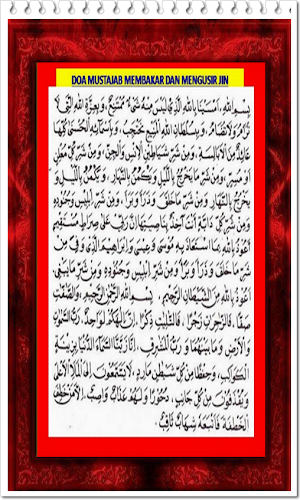 DOA MUSTAJAB MEMBAKAR DAN MENGUSIR JIN
بسم الله، أمسينا بالله الذي ليس منه شيء ممتنع، وبعزة الله التي لا
ترام ولا تضام، وبسلطان الله المنيع نحتجب، وبأسمائه الحسنى كلها
عائذ من الأبالسة، ومن شر شياطين الإنس والجن، ومن شر كل معلن
أو مسر، ومن شر ما يخرج بالليل ويكمن بالنهار، ويكمن بالليل و
يخرج بالنهار، ومن شر ما خلق وذرأ وبرأ، ومن شر إبليس وجنوده
ومن شر كل دابة أنت آخذ بناصيتها إن ربي على صراط مستقيم
أعوذ بالله بما استعاذ به موسى وعيسى وإبراهيم الذي وفى من
شر ما خلق وذرأ وبرأ ومن شر إبليس وجنوده ومن شر ما يبغى
أعوذ بالله من الشيطان الرجيم، بسم الله الرحمن الرحيم، والصافات
صفا، فالزاجرات زجرا، فالتاليات ذكرا، إن إلهكم لواحد، رب السموات
والأرض وما بينهما ورب المشارق، إنا زينا السماء الدنيا بزينة
الكواكب، وحفظا من كل شيطان مارد، لا يسمعون إلى الملإ الأعلى
ويقذفون من كل جانب، دحورا ولهم عذاب واصب، إلا من خطف
الخطفة فأتبعه شهاب ثاقب